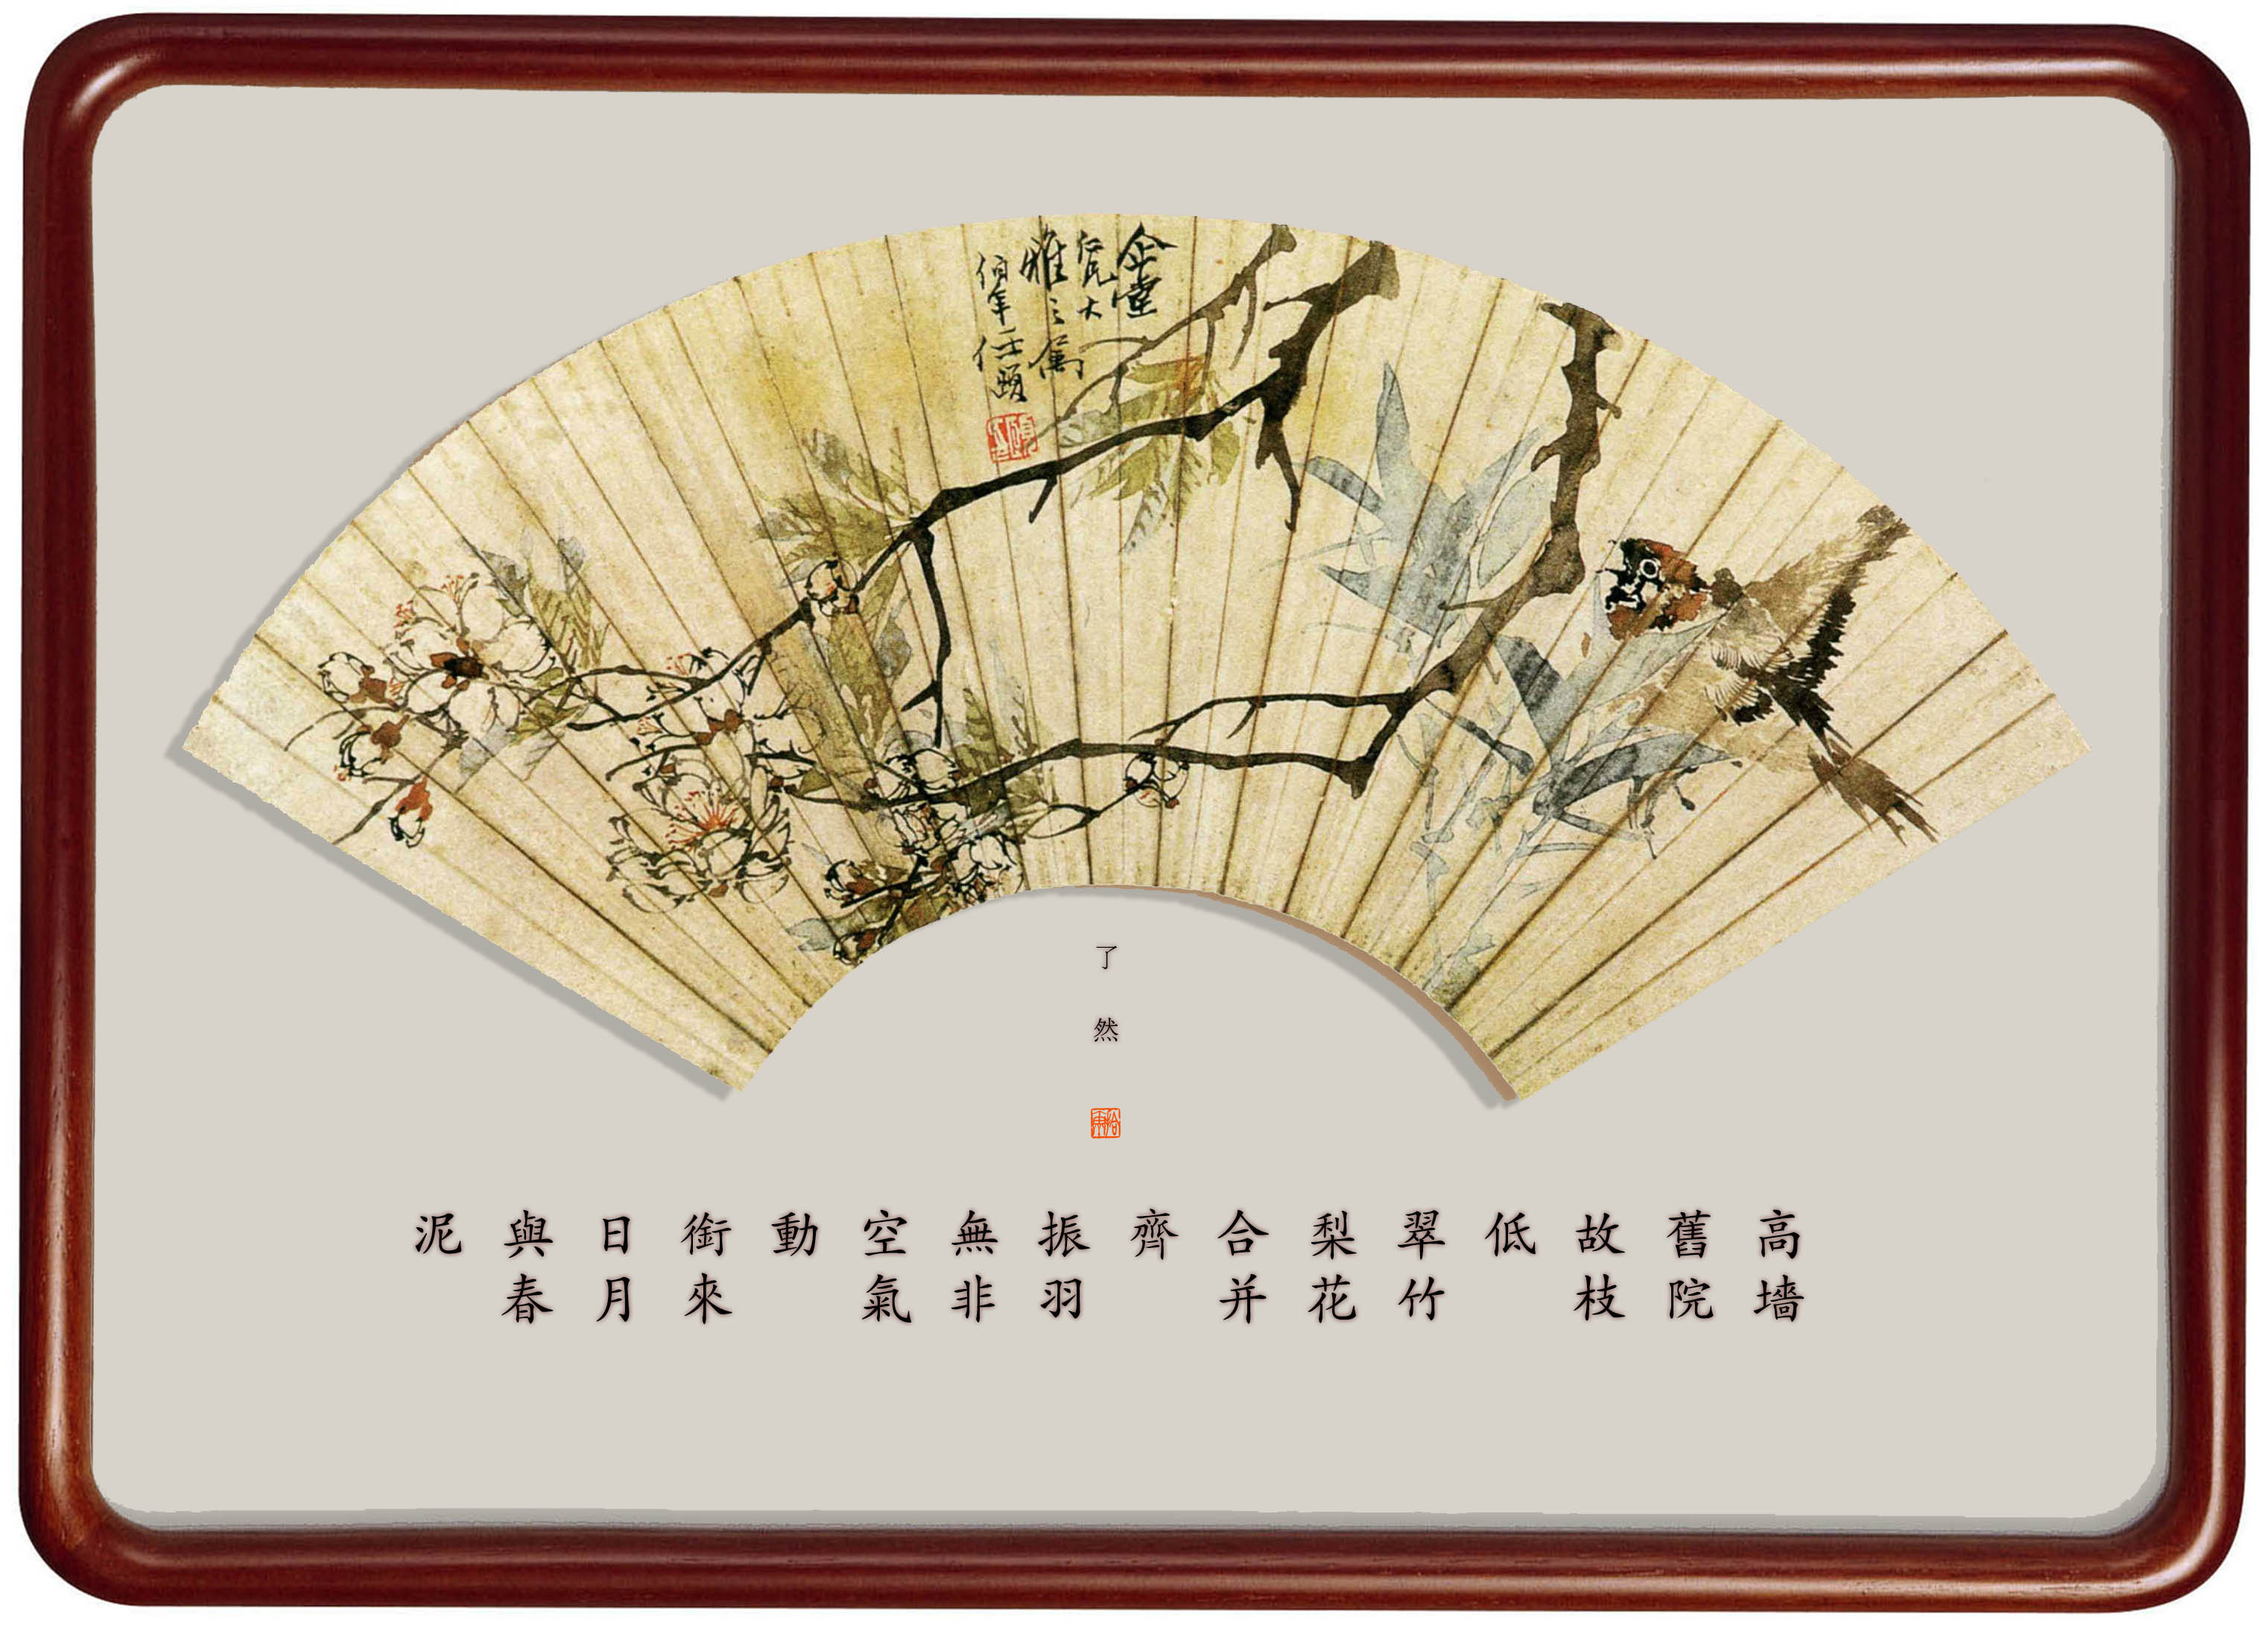 伯年任頤
了然
高墻
舊院
故枝
低
翠竹
梨花
合并
齊
振羽
無非
空氣
動
銜來
日月
與春
泥